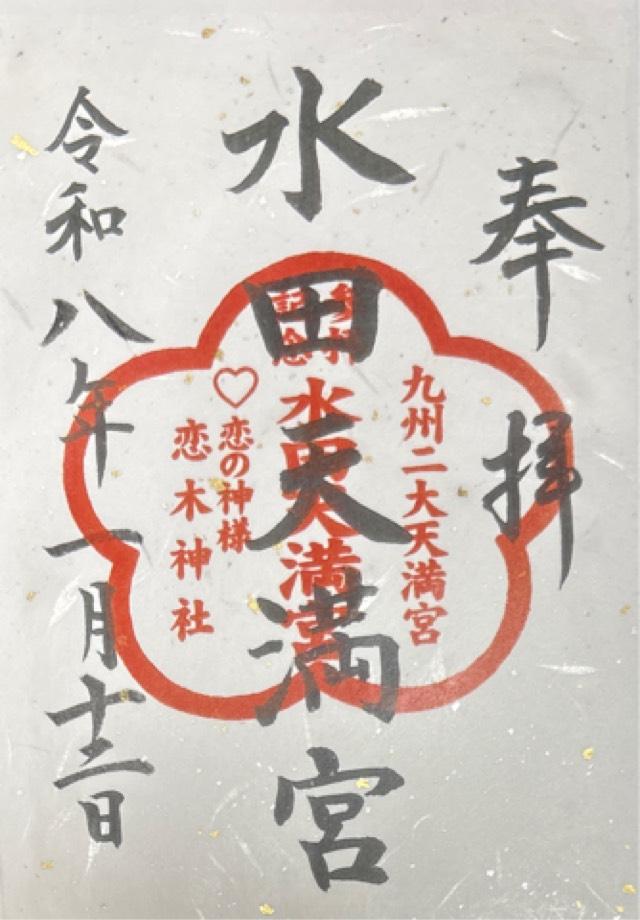 奉拝
九州二大天満宮
水田天満宮
参拝
記念
水田天満宮
♡恋の神様
恋木神社
令和八年一月十二日